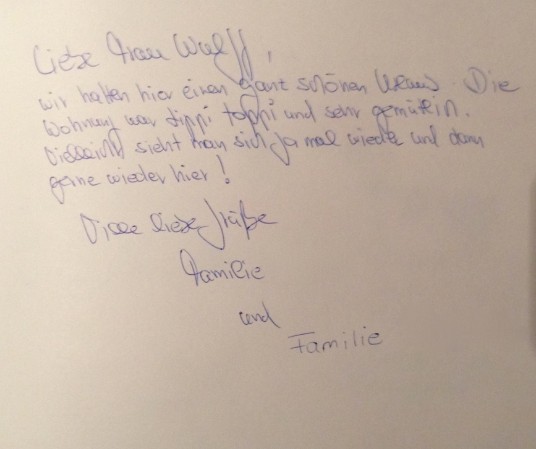 Liebe Frau Wulff,
wir hatten hier einen ganz schönen Urlaub. Die
Wohnung war tippi toppi und sehr gemütlich.
Vielleicht sieht man sich ja mal wieder und dann
gerne wieder hier!
Viele liebe Grüße
Familie
und
Familie